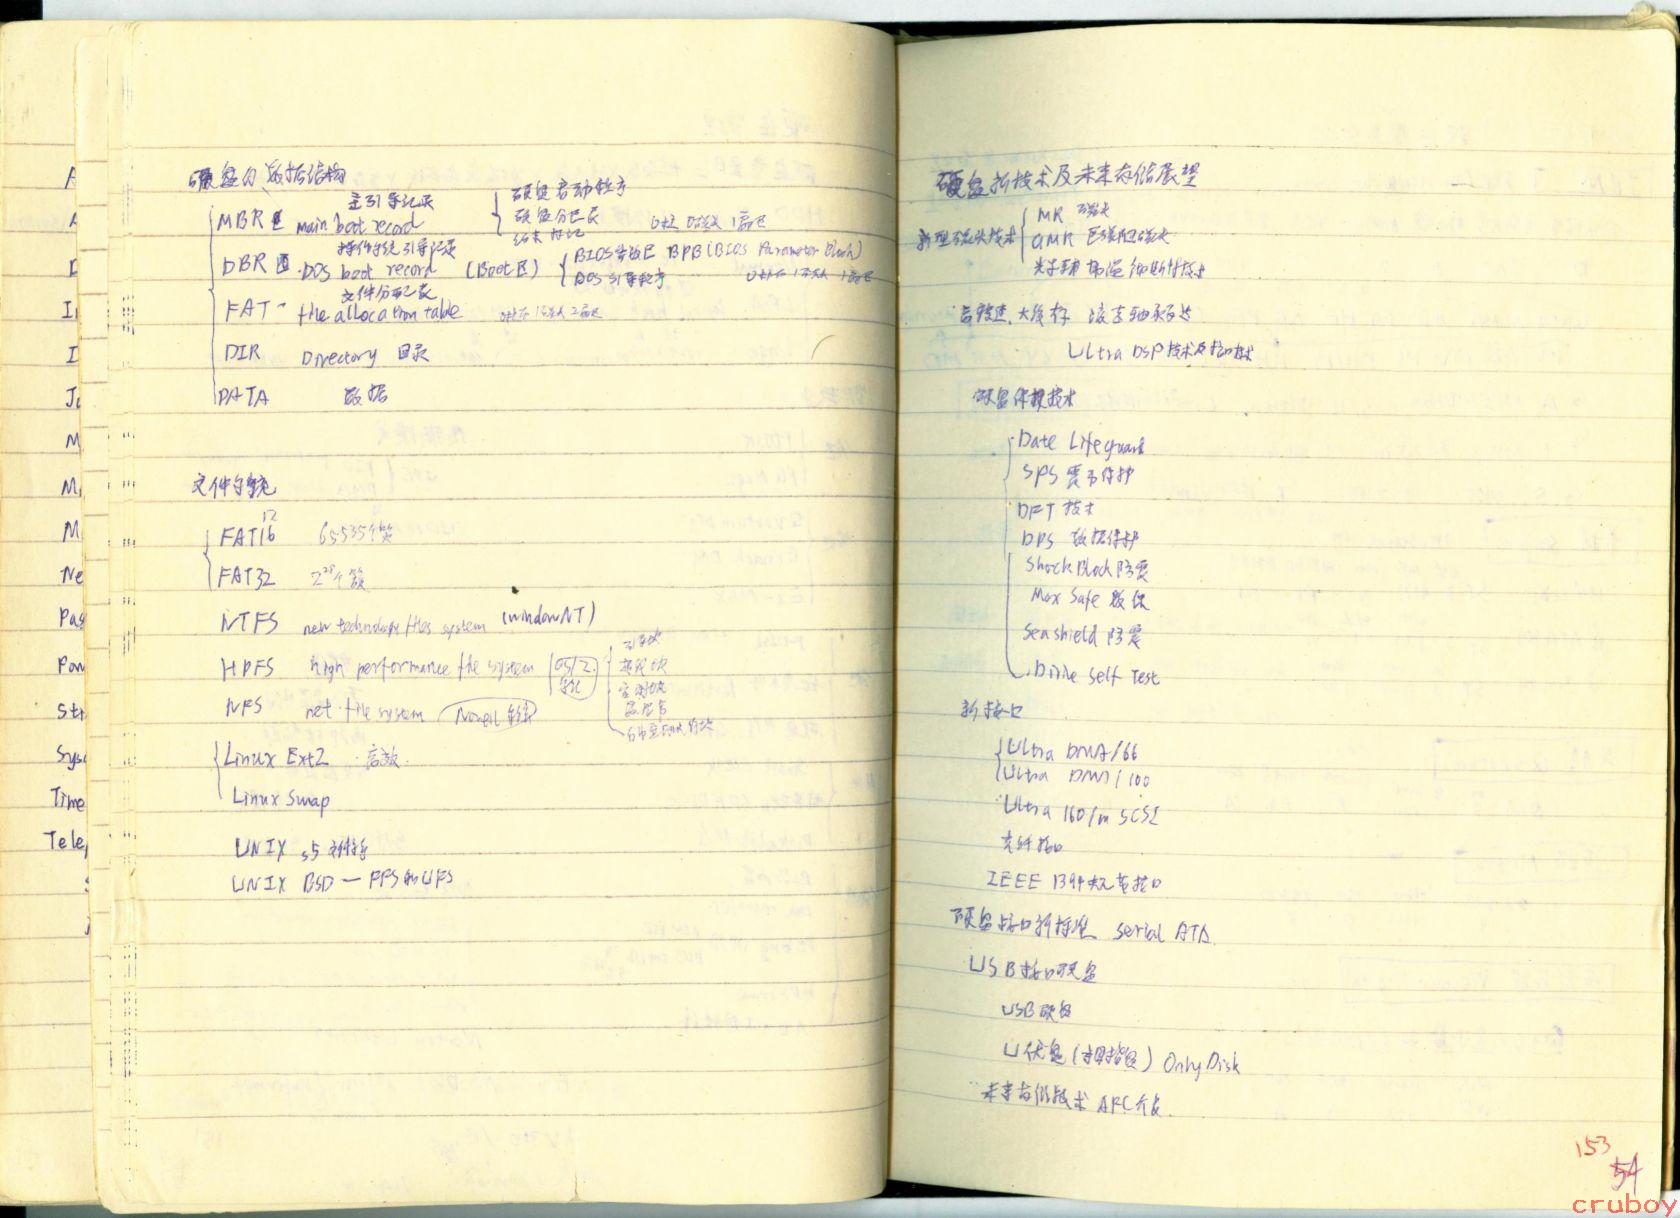 硬盘的数据结构
主引导记录
MBR区 main boot record
硬盘启动程序
硬盘分区表
结束标记
0柱 0磁头 1扇区
操作系统引导记录
DBR区 DOS boot record (Boot区)
BIOS参数区 BPB (BIOS Parameter Block)
DOS引导程序
0柱 1磁头 1扇区
文件分配表
FAT - file allocation table 0柱 1磁头 2扇区
DIR Directory 目录
DATA 数据
文件系统
12
FAT16 65535个簇
FAT32 2²⁸个簇
NTFS new technology files system (windowNT)
HPFS high performance file system OS/2
引导块
空闲块
NFS net file system Novell
Linux Ext2 高效
Linux Swap
UNIX s5 文件系
UNIX BSD — FFS和UFS
A
A
I
I
J
M
M
M
Ne
Pas
Pow
Str
Sys
Time
Tele
硬盘新技术及未来存储展望
新型磁头技术
MR 磁头
GMR 巨磁阻磁头
光学辅助温彻斯特技术
高转速、大缓存 液态轴承马达
Ultra DSP技术及接口技术
硬盘保护技术
Date Lifeguard
SPS 震动保护
DFT 技术
DPS 数据保护
ShockBlock 防震
Max Safe 数保
Seashield 防震
Drive Self Test
新接口
Ultra DMA/66
Ultra DMA/100
Ultra 160/m SCSI
光纤接口
IEEE 1394 火线接口
硬盘接口新标准 Serial ATA
USB接口硬盘
USB硬盘
U优盘(拇指盘) OnlyDisk
未来存储技术 AFC介质
153
54
cruboy